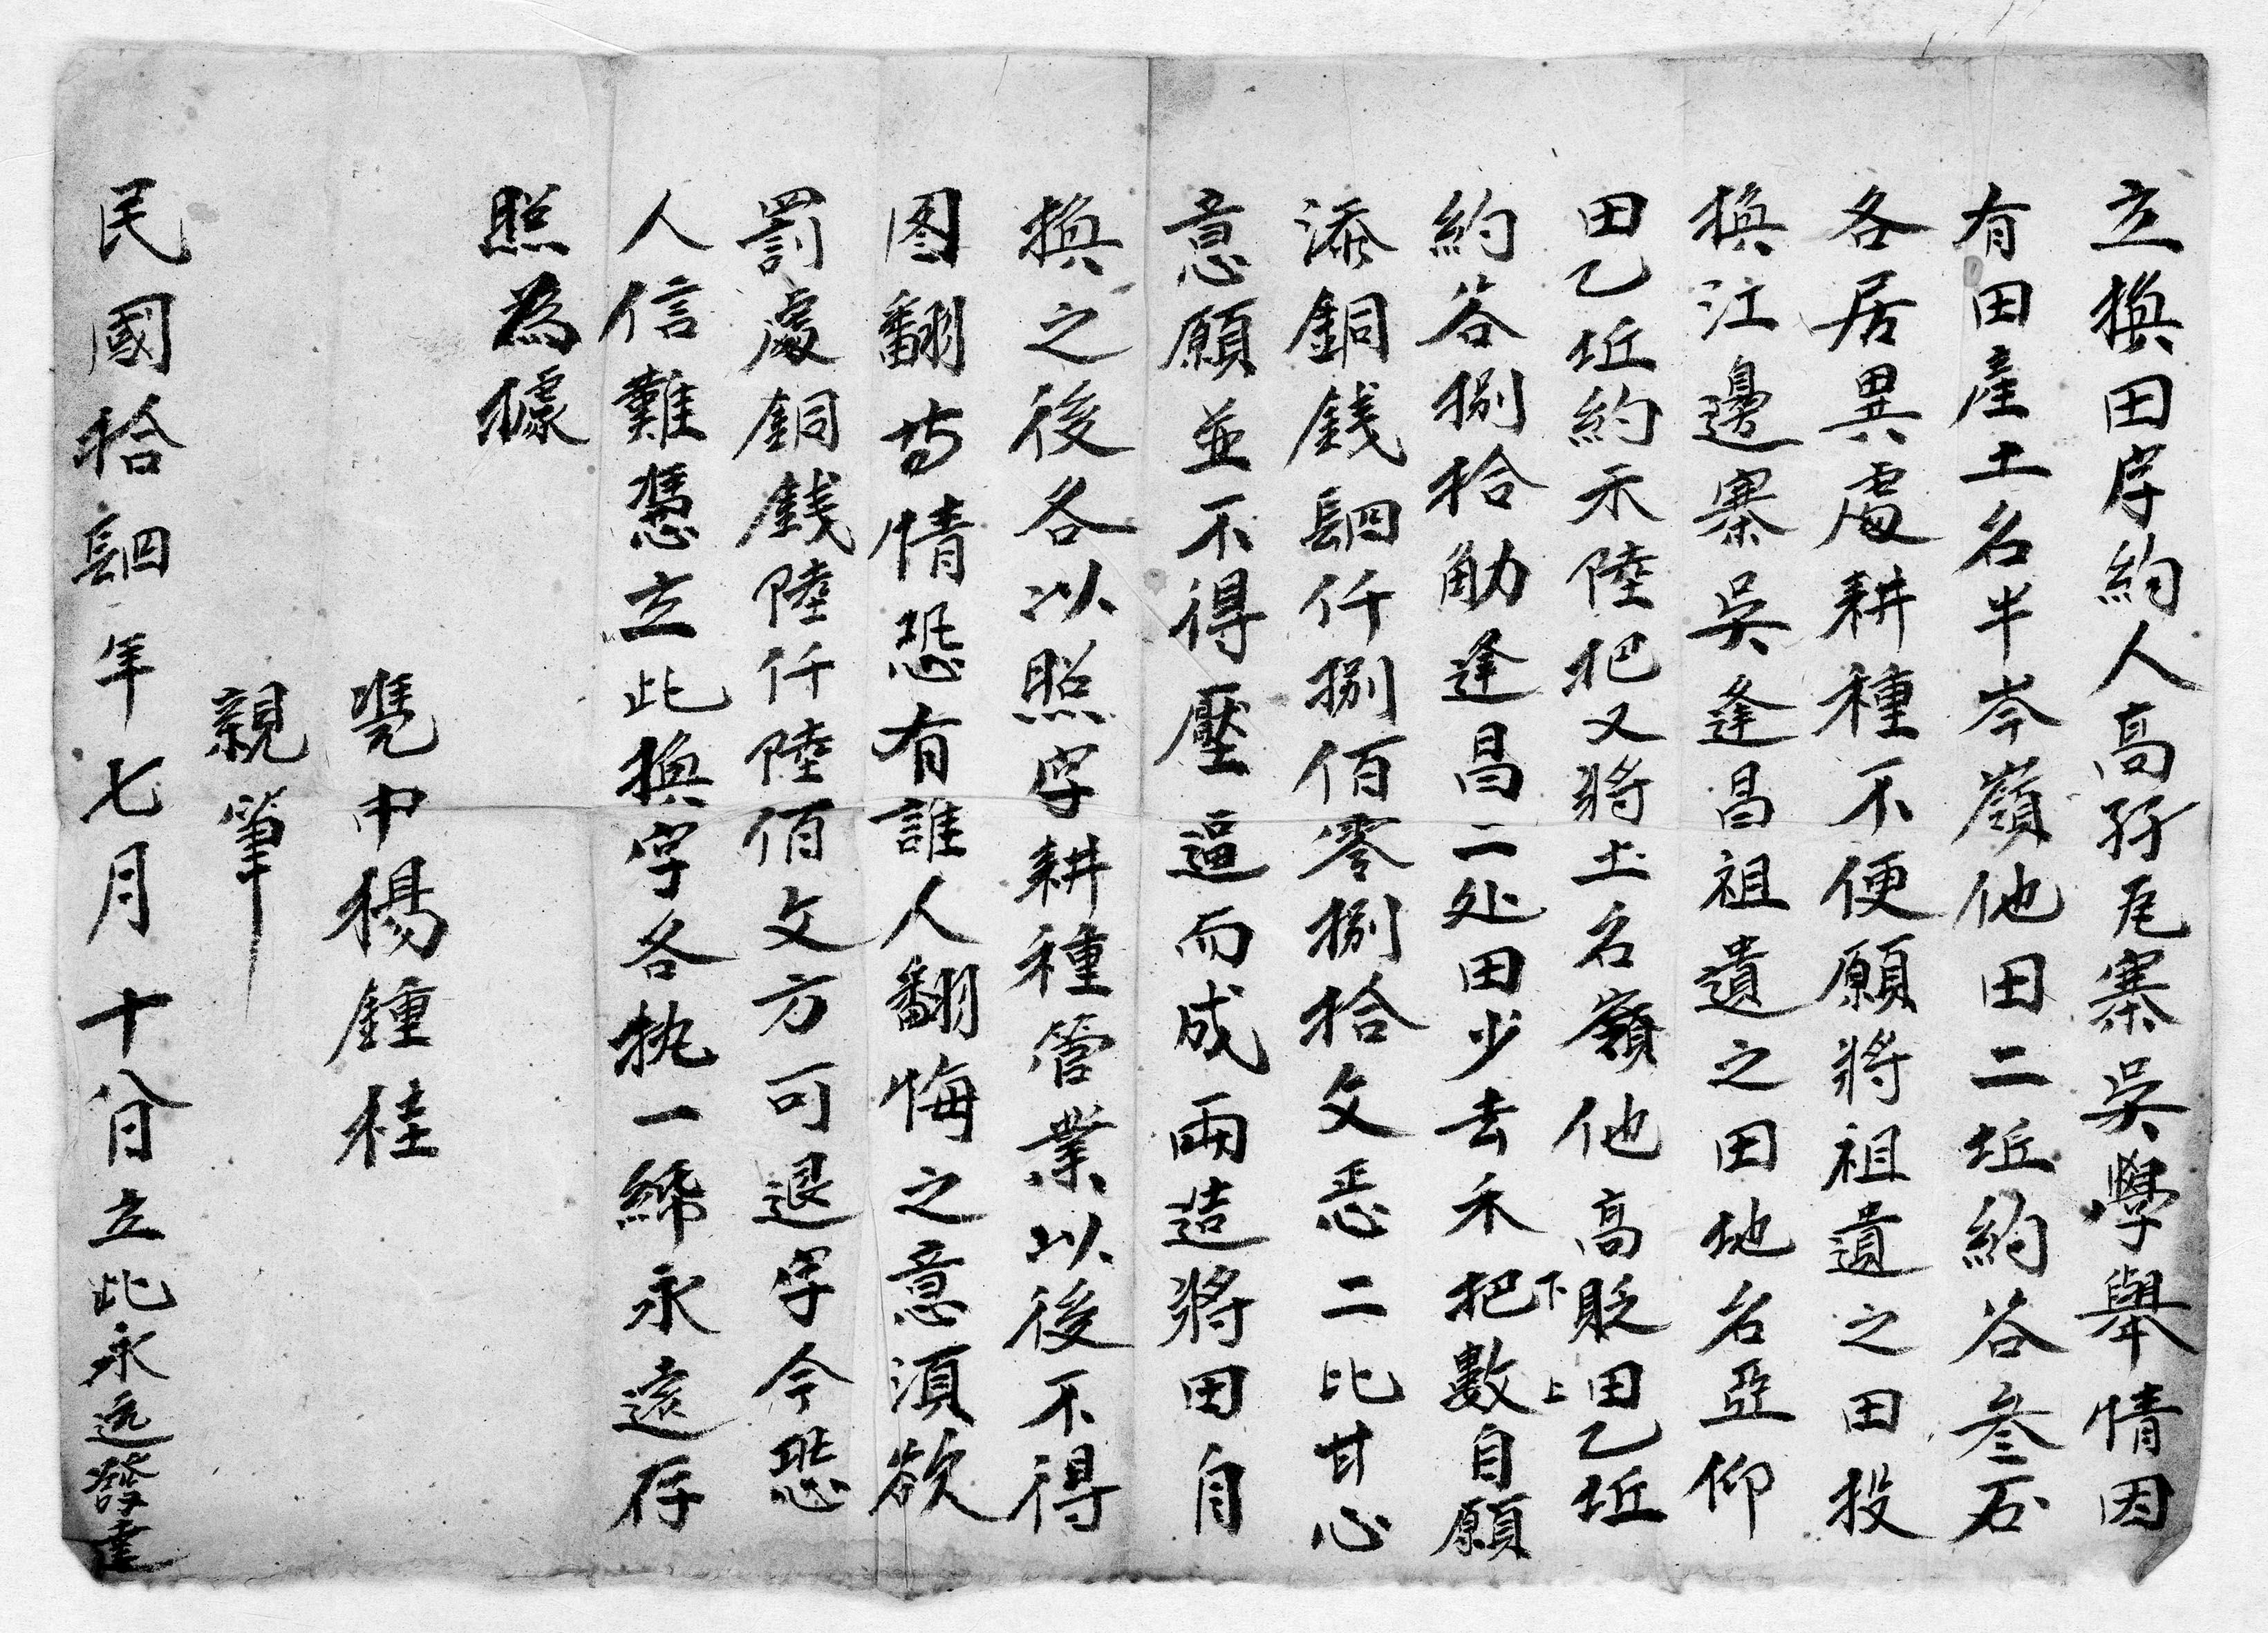 立換田字約人高孖尾寨吳學舉情因
有田產土名半岑嶺他田二坵約谷叁石
各居異處耕種不便願將祖遺之田投
換江邊寨吳逢昌祖遺之田地名亞仰
田乙坵約禾陸把又將土名嶺他高下貶上田乙坵
約谷捌拾觔逢昌二处田少去禾把數自願
添銅錢䦉仟捌佰零捌拾文悉二比甘心
意願並不得壓逼而成兩造將田自
換之後各以照字耕種管業以後不得
图翻情恐有誰人翻悔之意須欲
罰處銅錢陸仟陸佰文方可退字今恐
人信難憑立此換字各执一紙永遠存
照為據
凴中楊鍾桂
親筆
民國拾䦉年七月十八日立此永远發達